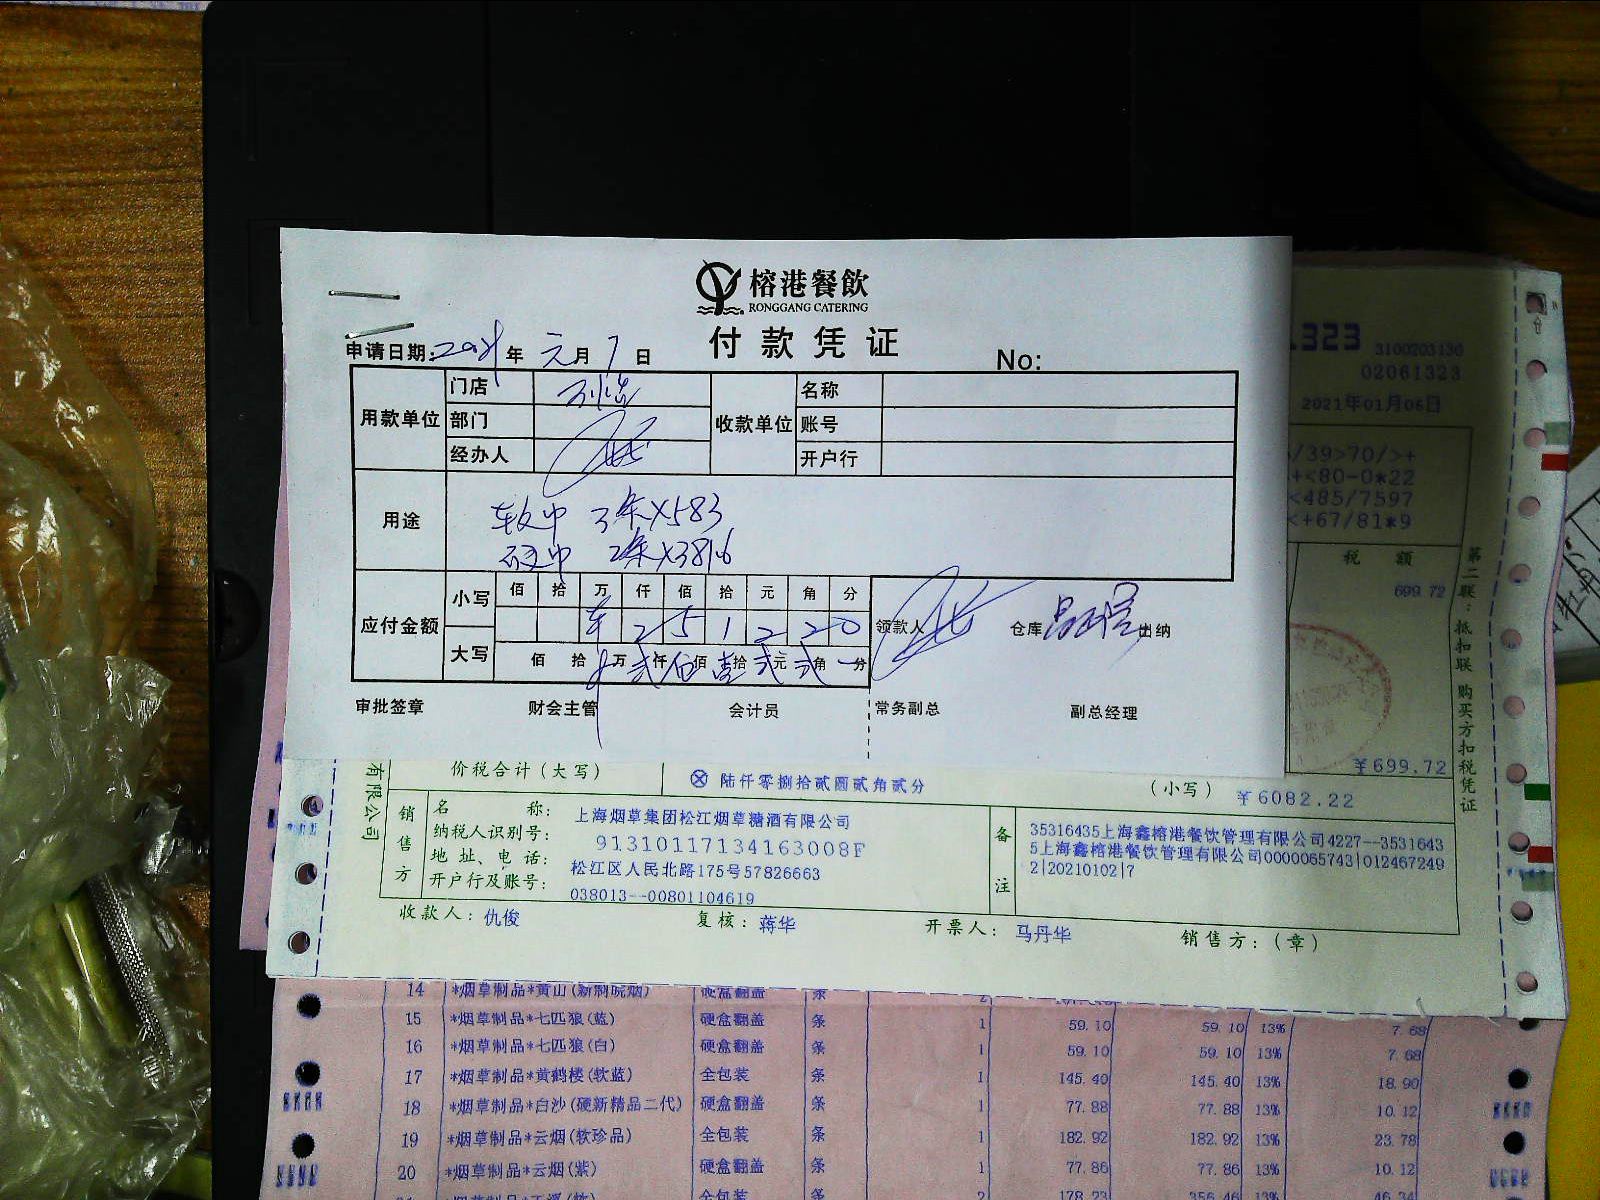 榕港餐飲
RONGGANG CATERING
付款凭证
申请日期: 年 元月 7 日
No:
用款单位 门店 收款单位 名称
部门 账号
经办人 开户行
用途 软中 3条X583
硬中 2条X381.6
应付金额 小写 佰 拾 万 仟 佰 拾 元 角 分
2 5 1 2 2 0
大写 佰 拾 万 仟 佰 拾 元 角 分
领款人 仓库 出纳
审批签章 财会主管 会计员 常务副总 副总经理
1323 3100203130
02061323
2021年01月06日
/39>70/>+
+<80-0*22
<485/7597
<+67/81*9
税 额
699.72
¥699.72
第二联:抵扣联 购买方扣税凭证
有限公司
价税合计(大写) ⊗ 陆仟零捌拾贰圆贰角贰分 (小写) ¥6082.22
销售方
名 称: 上海烟草集团松江烟草糖酒有限公司
纳税人识别号: 91310117134163008F
地 址、电 话: 松江区人民北路175号57826663
开户行及账号: 038013--00801104619
备注
35316435上海鑫榕港餐饮管理有限公司4227--3531643
5上海鑫榕港餐饮管理有限公司0000065743|012467249
2|20210102|7
收款人: 仇俊 复核: 蒋华 开票人: 马丹华 销售方:(章)
14 *烟草制品*黄山(新制皖烟) 硬盒翻盖 条 2
15 *烟草制品*七匹狼(蓝) 硬盒翻盖 条 1 59.10 59.10 13% 7.68
16 *烟草制品*七匹狼(白) 硬盒翻盖 条 1 59.10 59.10 13% 7.68
17 *烟草制品*黄鹤楼(软蓝) 全包装 条 1 145.40 145.40 13% 18.90
18 *烟草制品*白沙(硬新精品二代) 硬盒翻盖 条 1 77.88 77.88 13% 10.12
19 *烟草制品*云烟(软珍品) 全包装 条 1 182.92 182.92 13% 23.78
20 *烟草制品*云烟(紫) 硬盒翻盖 条 1 77.86 77.86 13% 10.12
全包装 条 2 178.23 356.46 13% 46.34